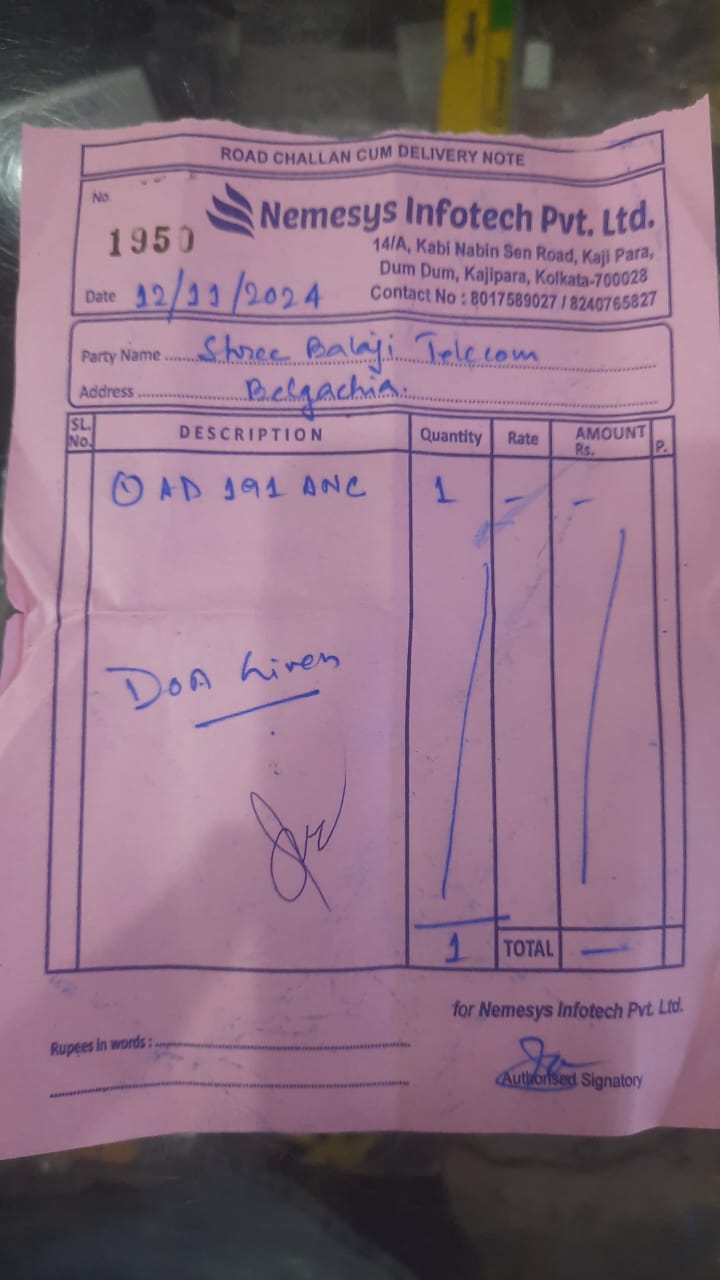 ROAD CHALLAN CUM DELIVERY NOTE
No.
1950
Nemesys Infotech Pvt. Ltd.
14/A, Kabi Nabin Sen Road, Kaji Para,
Dum Dum, Kajipara, Kolkata-700028
Contact No : 8017589027 / 8240765827
Date 12/11/2024
Party Name Shree Balaji Telecom
Address Belgachia.
SL. No. DESCRIPTION Quantity Rate AMOUNT Rs. P.
① AD 191 ANC 1 - -
DOA Given
1 TOTAL —
for Nemesys Infotech Pvt. Ltd.
Rupees in words :
Authorised Signatory